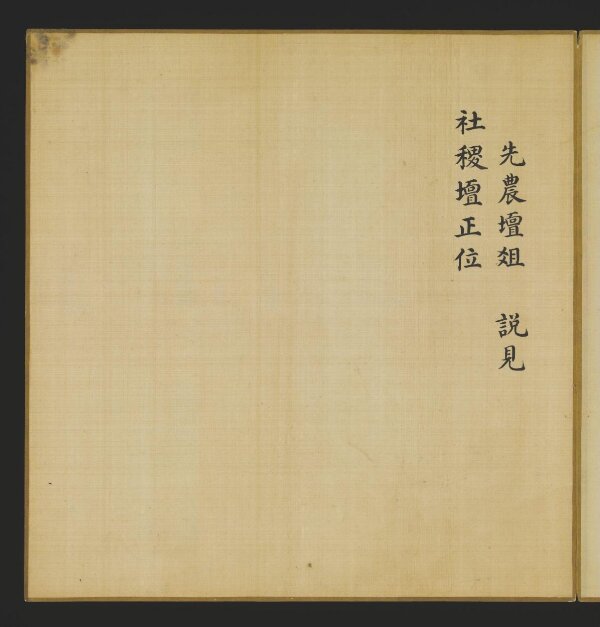 先農壇俎　説見
社稷壇正位